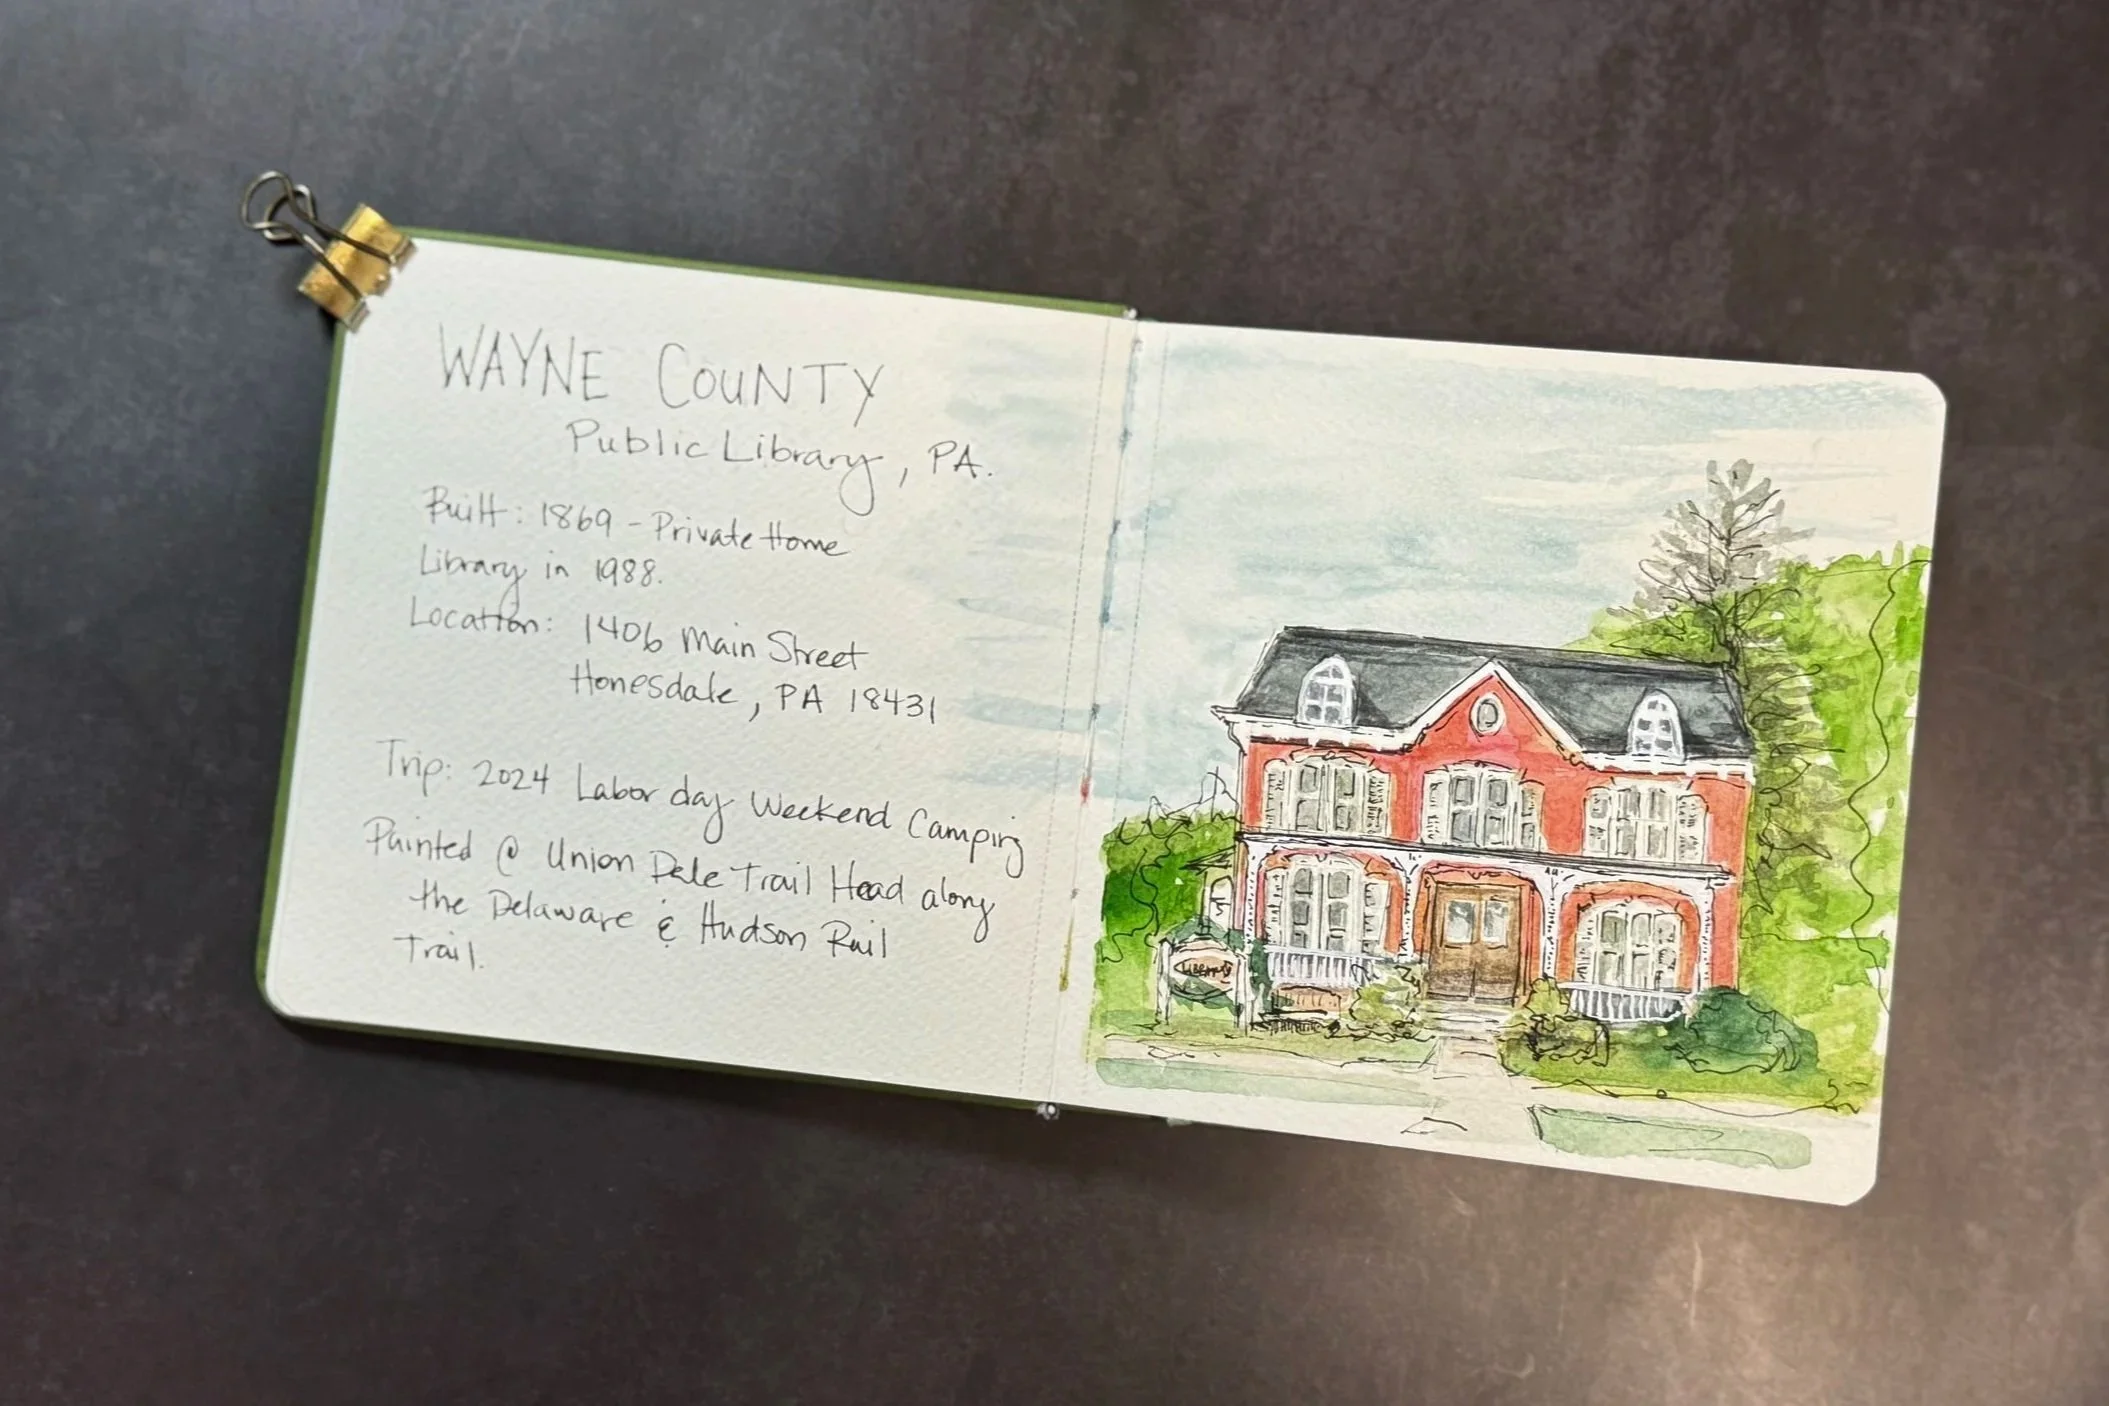 WAYNE COUNTY
Public Library, PA.
Built: 1869 - Private Home
Library in 1988.
Location: 1406 Main Street
Honesdale, PA 18431
Trip: 2024 Labor day Weekend Camping
Painted @ Union Dale Trail Head along
the Delaware & Hudson Rail
Trail.
LIBRARY